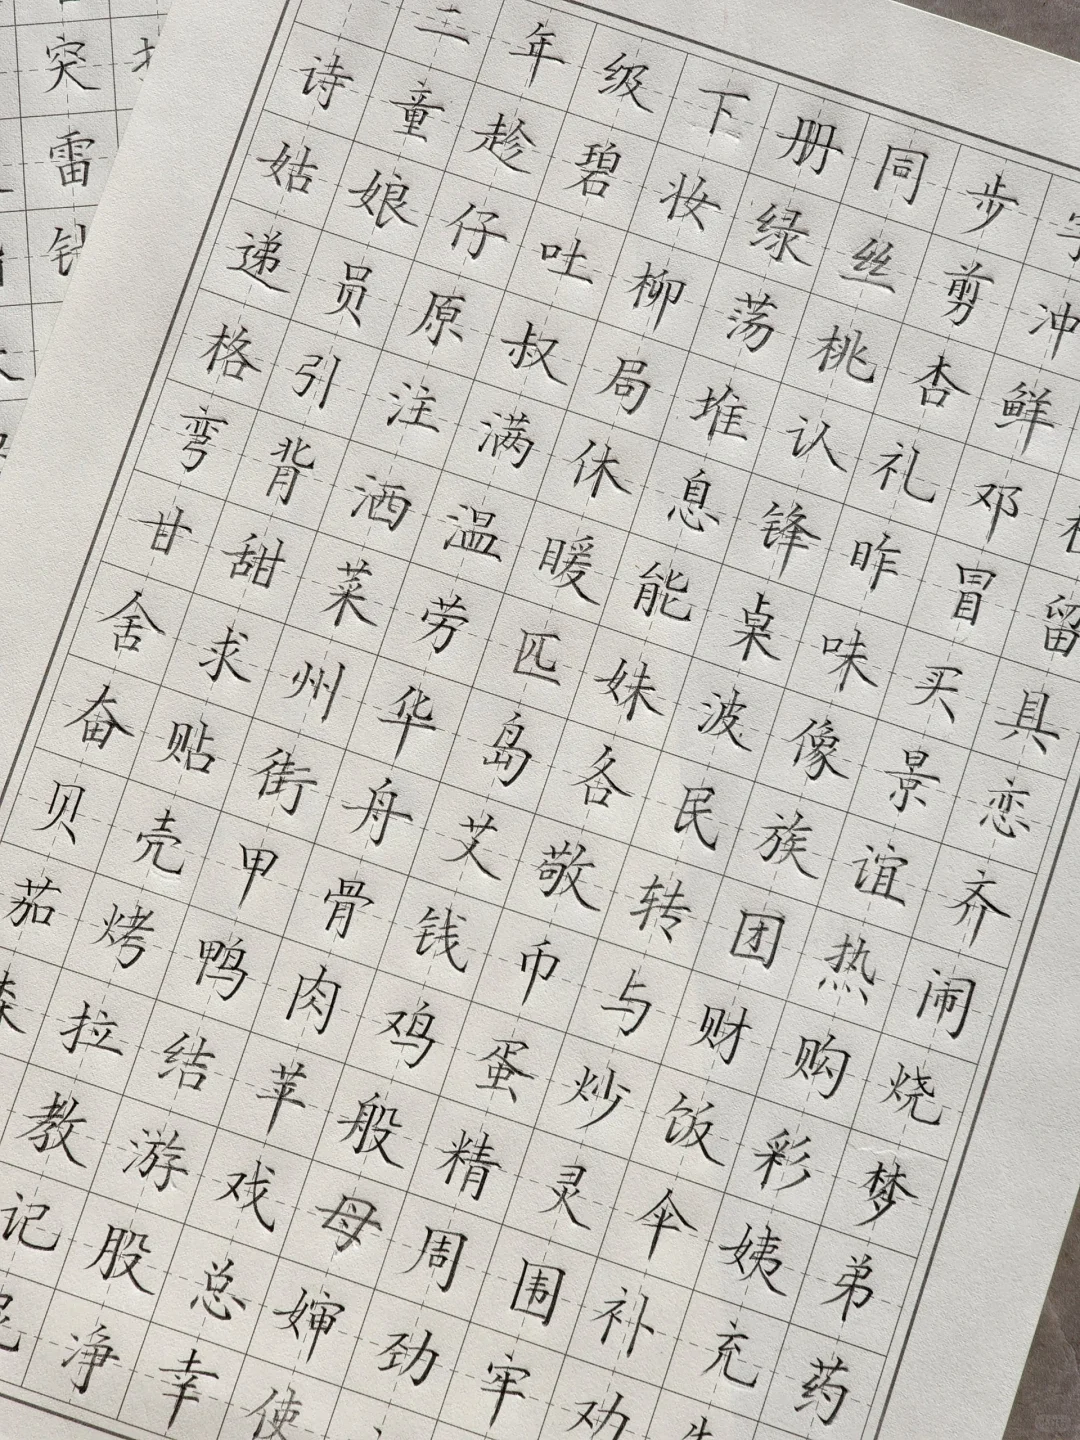 二年级下册同步
诗童趁碧妆绿丝剪冲
姑娘仔吐柳荡桃杏鲜
递员原叔局堆认礼邓
格引注满休息锋昨冒留
弯背洒温暖能桌味买具
甘甜菜劳匹妹波像景恋
舍求州华岛各民族谊齐
奋贴街舟艾敬转团热闹
贝壳甲骨钱币与财购烧
茄烤鸭肉鸡蛋炒饭彩梦
森拉结苹般精灵伞姨弟
教游戏母周围补充药
记股总婶劲牢劝
净幸使
突
雷